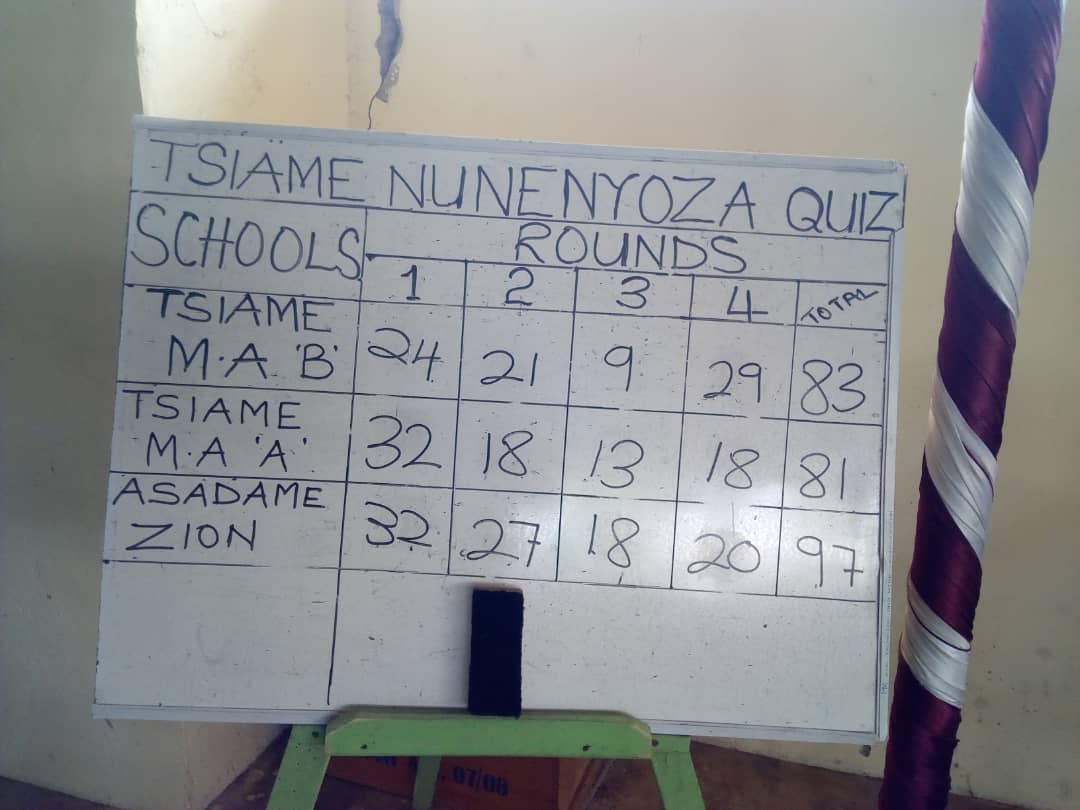 TSIAME NUNENYOZA QUIZ
SCHOOLS ROUNDS
1 2 3 4 TOTAL
TSIAME
M.A 'B' 24 21 9 29 83
TSIAME
M.A 'A' 32 18 13 18 81
ASADAME
ZION 32 27 18 20 97
07/08